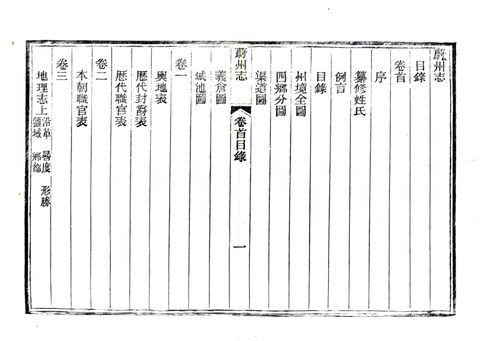 蔚州志
目錄
卷首
序
纂修姓氏
例言
目錄
州境全圖
四鄉分圖
渠道圖
蔚州志
卷首目錄
一
義倉圖
城池圖
卷一
輿地表
歷代封爵表
歷代職官表
卷二
本朝職官表
卷三
地理志上 沿革 疆域 晷度 形勝